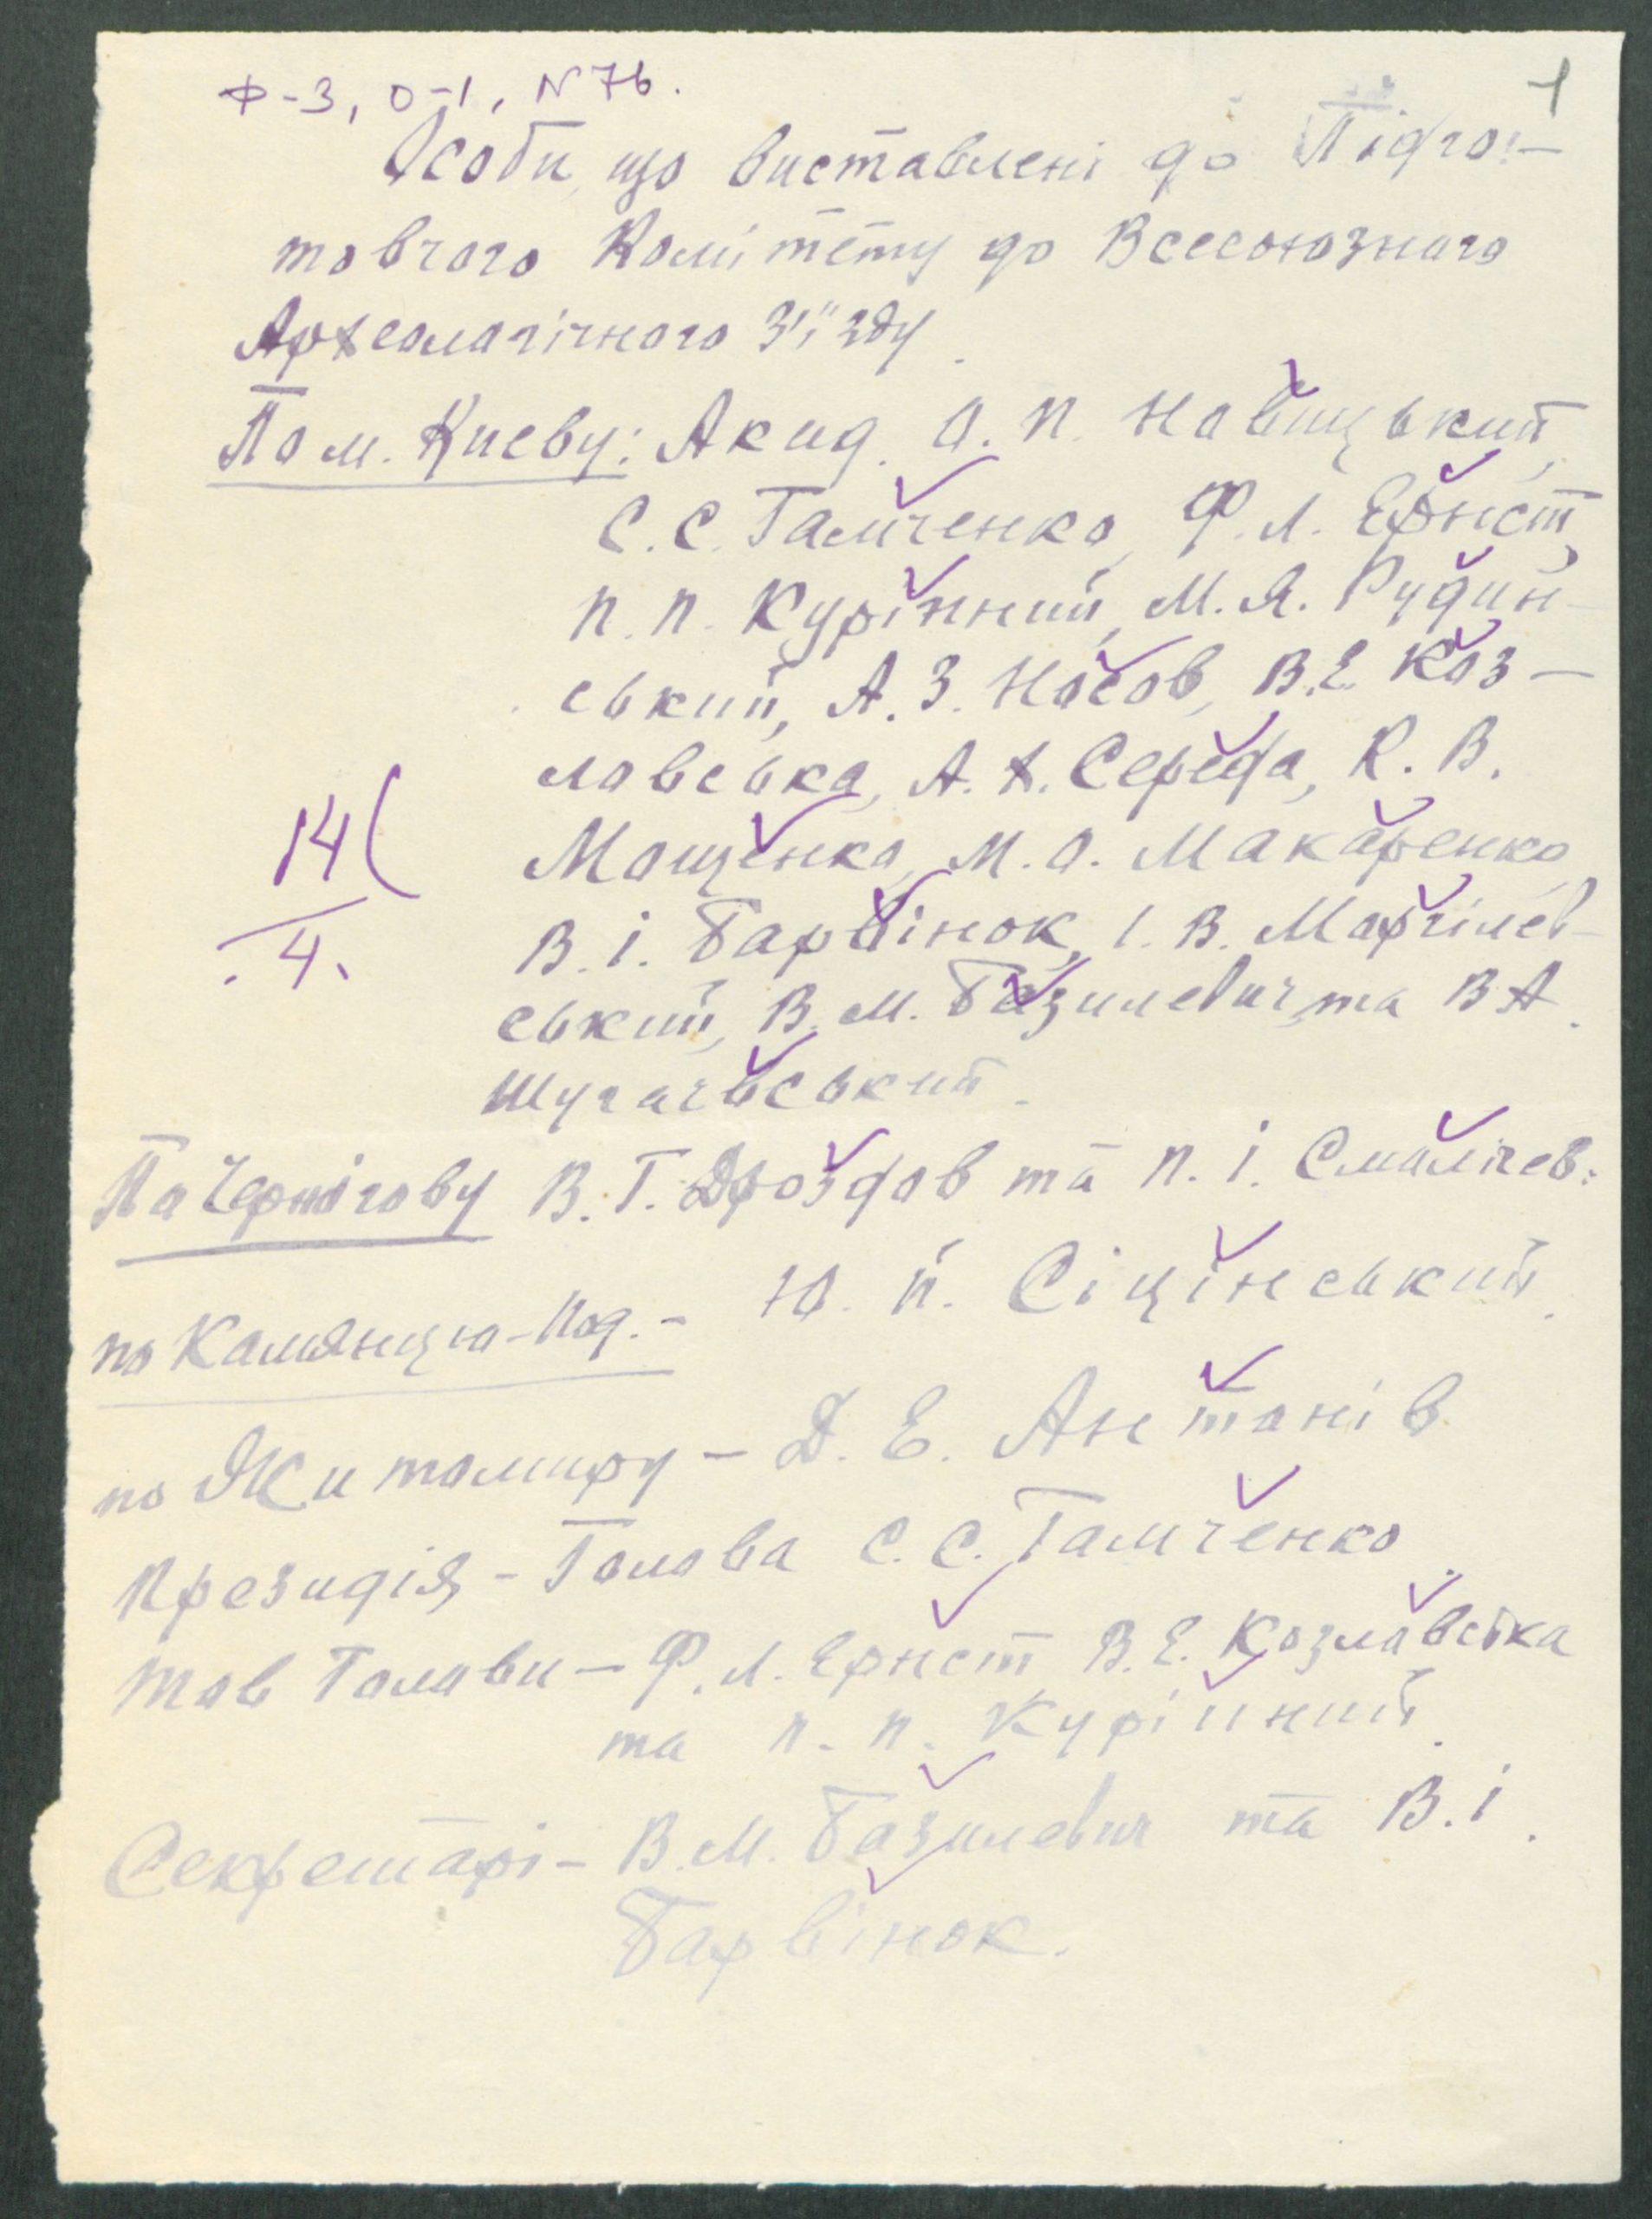 Ф-3, О-1, N 76.
1
Особи, що виставлені до Підго-
товчого Комітету до Всесоюзного
Археологічного З'їзду.
По м. Києву: Акад. О. П. Новицький,
С. С. Гамченко, Ф. Л. Ернст,
П. П. Курінний, М. Я. Рудин-
ський, А. З. Носов, В. Е. Коз-
ловська, А. Х. Середа, К. В.
Мощенко, М. О. Макаренко,
14
4.
В. І. Барвінок, І. В. Моргілев-
ський, В. М. Базилевич, та В. А.
Шугаевський.
По Чернігову В. Г. Дроздов та П. І. Смолічев.
по Камянцю-Под. - Ю. Й. Сіцінський.
по Житомиру - Д. Е. Антонів
Президія - Голова С. С. Гамченко.
тов Голови - Ф. Л. Ернст В. Е. Козловська
та П. П. Курінний.
Секретарі - В. М. Базилевич та В. І.
Барвінок.